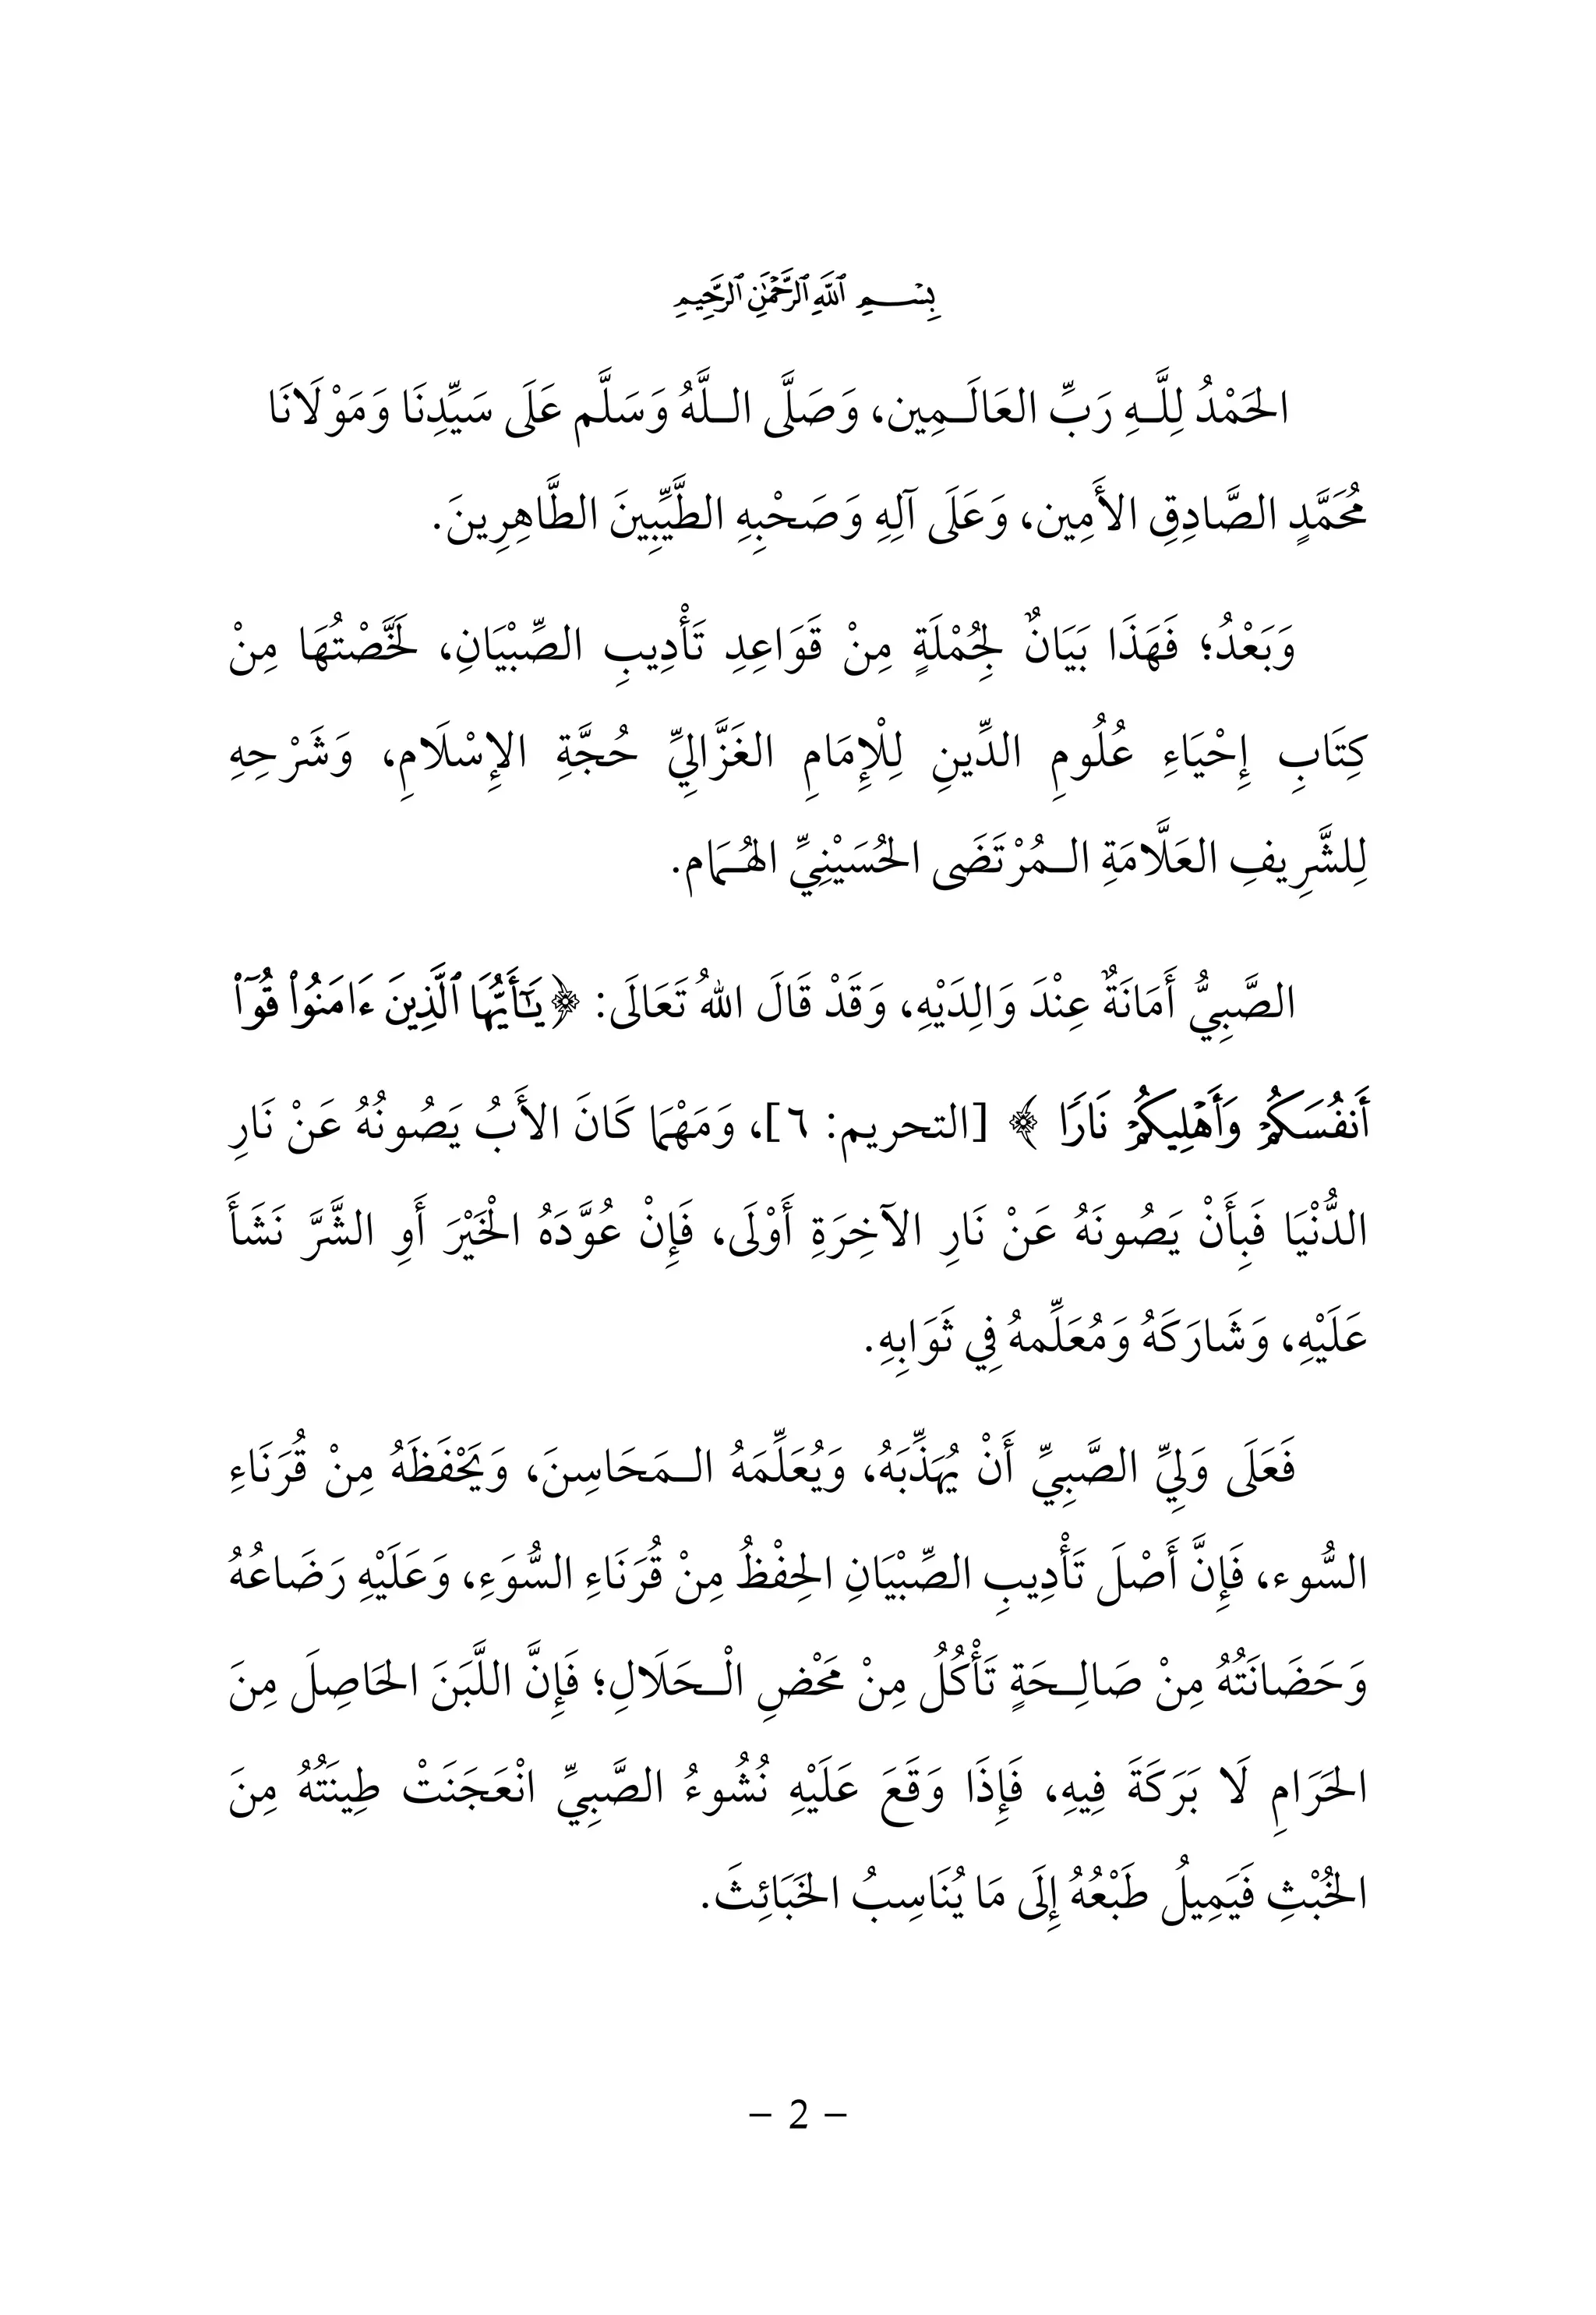 بِسْمِ ٱللَّهِ ٱلرَّحْمَٰنِ ٱلرَّحِيمِ
الحَمْدُ لِلَّـهِ رَبِّ العَالَـمِين، وَصَلَّى الـلَّهُ وَسَلَّم عَلَى سَيِّدِنَا وَمَوْلَانَا
مُحَمَّدٍ الصَّادِقِ الأَمِين، وَعَلَى آلِهِ وَصَحْبِهِ الطَّيِّبِينَ الطَّاهِرِينَ.
وَبَعْدُ؛ فَهَذَا بَيَانٌ لِجُمْلَةٍ مِنْ قَوَاعِدِ تَأْدِيبِ الصِّبْيَانِ، لَخَّصْتُهَا مِنْ
كِتَابِ إِحْيَاءِ عُلُومِ الدِّينِ لِلْإِمَامِ الغَزَّالِيِّ حُجَّةِ الإِسْلَامِ، وَشَرْحِهِ
لِلشَّرِيفِ العَلَّامَةِ الـمُرْتَضَى الحُسَيْنِيِّ الهُـمَام.
الصَّبِيُّ أَمَانَةٌ عِنْدَ وَالِدَيْهِ، وَقَدْ قَالَ اللهُ تَعَالَى: ﴿يَـٰٓأَيُّهَا ٱلَّذِينَ ءَامَنُوا۟ قُوٓا۟
أَنفُسَكُمْ وَأَهْلِيكُمْ نَارًا ﴾ [التحريم: ٦]، وَمَهْمَا كَانَ الأَبُ يَصُونُهُ عَنْ نَارِ
الدُّنْيَا فَبِأَنْ يَصُونَهُ عَنْ نَارِ الآخِرَةِ أَوْلَى، فَإِنْ عُوَّدَهُ الْخَيْرَ أَوِ الشَّرَّ نَشَأَ
عَلَيْهِ، وَشَارَكَهُ وَمُعَلِّمهُ فِي ثَوَابِهِ.
فَعَلَى وَلِيِّ الصَّبِيِّ أَنْ يُهَذِّبَهُ، وَيُعَلِّمَهُ الـمَحَاسِنَ، وَيَحْفَظَهُ مِنْ قُرَنَاءِ
السُّوء، فَإِنَّ أَصْلَ تَأْدِيبِ الصِّبْيَانِ الحِفْظُ مِنْ قُرَنَاءِ السُّوَءِ، وَعَلَيْهِ رَضَاعُهُ
وَحَضَانَتُهُ مِنْ صَالِـحَةٍ تَأْكُلُ مِنْ مَحْضِ الْـحَلَالِ؛ فَإِنَّ اللَّبَنَ الحَاصِلَ مِنَ
الحَرَامِ لَا بَرَكَةَ فِيهِ، فَإِذَا وَقَعَ عَلَيْهِ نُشُوءُ الصَّبِيِّ انْعَجَنَتْ طِينَتُهُ مِنَ
الخُبْثِ فَيَمِيلُ طَبْعُهُ إِلَى مَا يُنَاسِبُ الخَبَائِثَ.
– 2 –